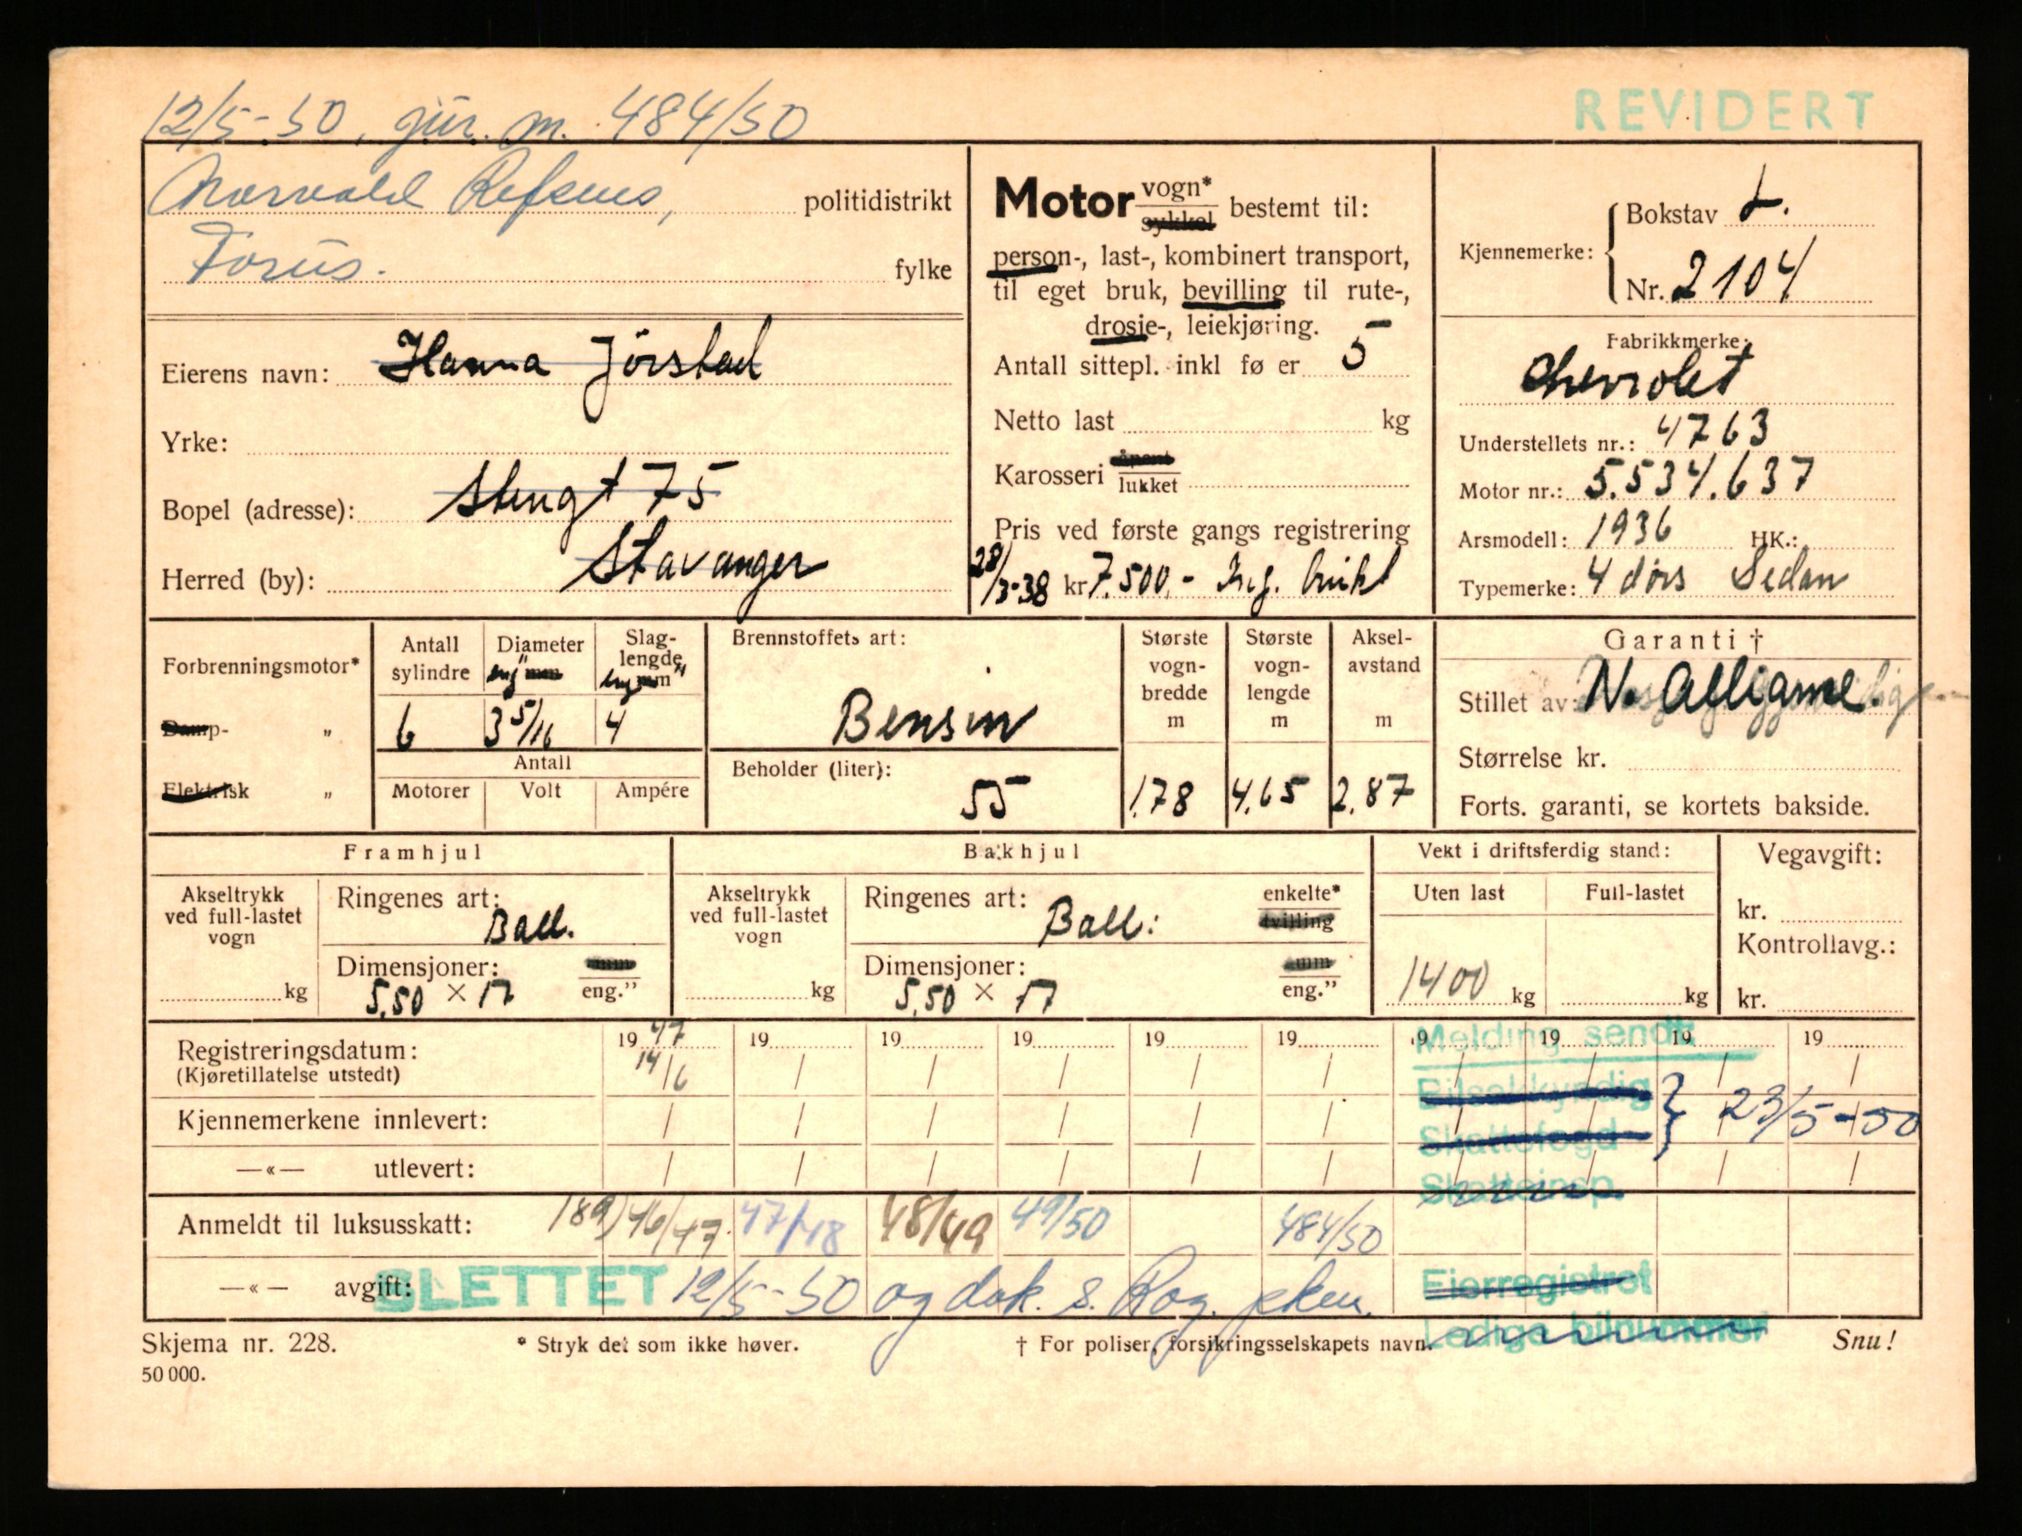 12/5-50, gjür. m. 484/50
REVIDERT
Norvald Refsnes, politidistrikt
Forus. fylke
Eierens navn: Hanna Jörstad
Yrke:
Bopel (adresse): Stengt 75
Herred (by): Stavanger
Motor vogn* sykkel bestemt til:
person-, last-, kombinert transport,
til eget bruk, bevilling til rute-,
drosje-, leiekjøring.
Antall sittepl. inkl fø er 5
Netto last kg
Karosseri åpent lukket
Pris ved første gangs registrering
28/3-38 kr 7.500,- Reg. brukt
Kjennemerke:
Bokstav L.
Nr. 2104
Fabrikkmerke:
Chevrolet
Understellets nr.: 4763
Motor nr.: 5.534.637
Arsmodell: 1936 HK.:
Typemerke: 4 dörs Sedan
Forbrenningsmotor*
Damp- „
Elektrisk „
Antall sylindre
6
Diameter eng" mm
3 5/16
Slaglengde eng" mm
4
Antall
Motorer Volt Ampére
Brennstoffets art:
Bensin
Beholder (liter):
55
Største vognbredde m
1.78
Største vognlengde m
4,65
Akselavstand m
2.87
Garanti †
Stillet av:
Størrelse kr.
Forts. garanti, se kortets bakside.
Framhjul
Akseltrykk ved full-lastet vogn
kg
Ringenes art:
Ball.
Dimensjoner: mm
5.50 × 17 eng.”
Bakhjul
Akseltrykk ved full-lastet vogn
kg
Ringenes art: enkelte*
Ball: tvilling
Dimensjoner: mm
5.50 × 17 eng.”
Vekt i driftsferdig stand:
Uten last Full-lastet
1400 kg kg
Vegavgift:
kr.
Kontrollavg.:
kr.
Registreringsdatum: 1947 19 19 19 19 19 19 19 19 19
(Kjøretillatelse utstedt) 14/6 / / / / / / / / /
Kjennemerkene innlevert: / / / / / / / / / /
—«— utlevert: / / / / / / / / / /
Melding sendt
Bilsakkyndig
Skattefogd } 23/5-50
Skatteinsp.
Anmeldt til luksusskatt: 189) 46/47 47/48 48/49 49/50 484/50
—«— avgift: SLETTET 12/5-50 og dok. s. Rog.
Eierregistret
Ledige bilnummer
Skjema nr. 228.
* Stryk det som ikke høver.
† For poliser, forsikringsselskapets navn.
Snu!
50 000.